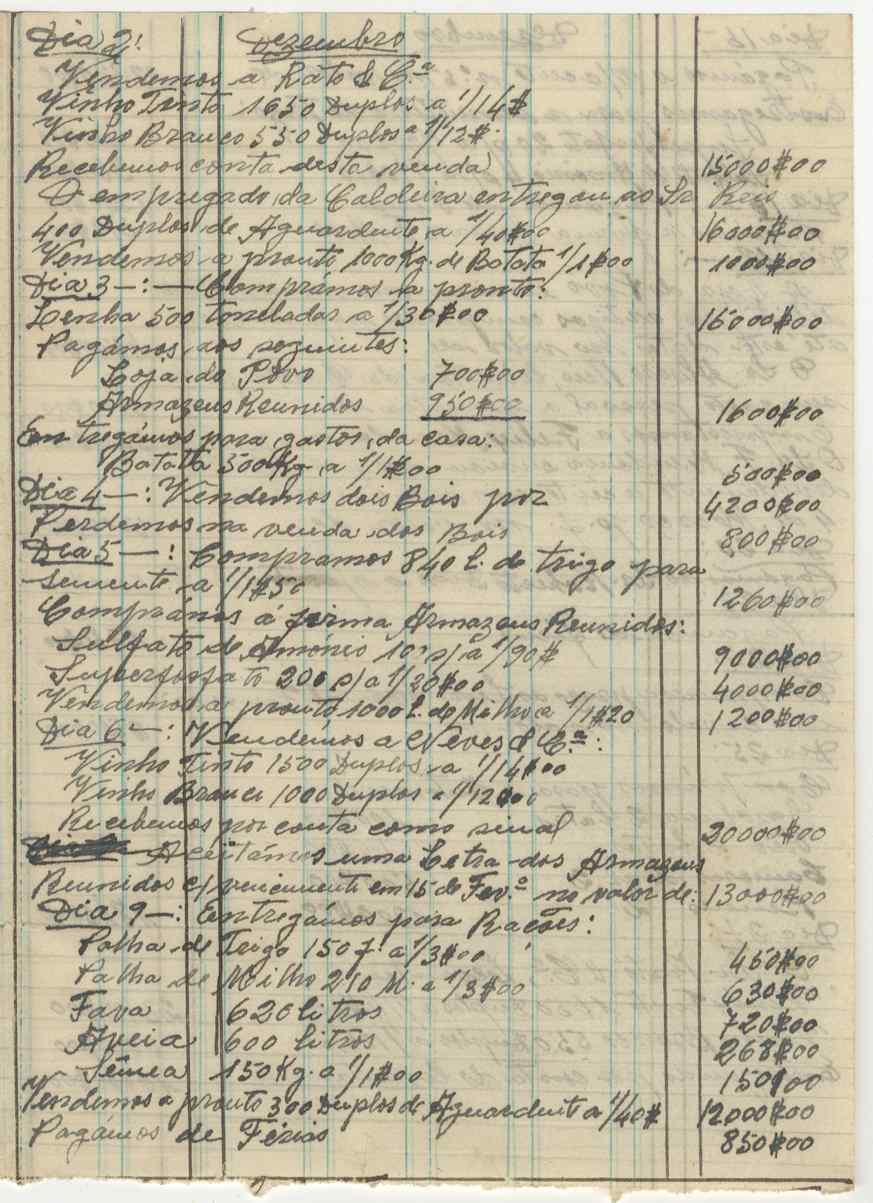 Dia 2: Dezembro
Vendemos a Rato & C.ª
Vinho Tinto 1650 Duplos a 1/14$
Vinho Branco 550 Duplos a 1/12$
Recebemos conta desta venda 15000$00
O empregado da Caldeira entregou ao Sr Reis
400 Duplos de Aguardente a 1/40$00 16000$00
Vendemos a pronto 1000 Kg. de Batata 1/1$00 1000$00
Dia 3 —:— Comprámos a pronto:
Lenha 500 toneladas a 1/30$00 15000$00
Pagámos aos seguintes:
Loja do Povo 700$00
Armazens Reunidos 950$00 1600$00
Entregámos para gastos da casa:
Batata 500 Kg. a 1/1$00 500$00
Dia 4 —: Vendemos dois Bois por 4200$00
Perdemos na venda dos Bois 800$00
Dia 5 —: Compramos 840 l. de trigo para
semente a 1/1$50 1260$00
Comprámos á firma Armazens Reunidos:
Sulfato de Amónio 10 s/ a 1/90$ 9000$00
Superfosfato 200 s/ a 1/20$00 4000$00
Vendemos a pronto 1000 l. de Milho a 1/1$20 1200$00
Dia 6 —: Vendemos a Neves & C.ª:
Vinho Tinto 1500 Duplos a 1/14$00
Vinho Branco 1000 Duplos a 1/12$00
Recebemos por conta como sinal 20000$00
Aceitámos uma Letra dos Armazens
Reunidos c/ vencimento em 15 de Fev.º no valor de: 13000$00
Dia 9 —: Entregámos para Rações:
Palha de Trigo 150 f. a 1/3$00 450$00
Palha de Milho 210 M. a 1/3$00 630$00
Fava 620 litros 720$00
Aveia 600 litros 268$00
Sêmea 150 Kg. a 1/1$00 150$00
Vendemos a pronto 300 Duplos de Aguardente a 1/40$ 12000$00
Pagamos de Férias 850$00